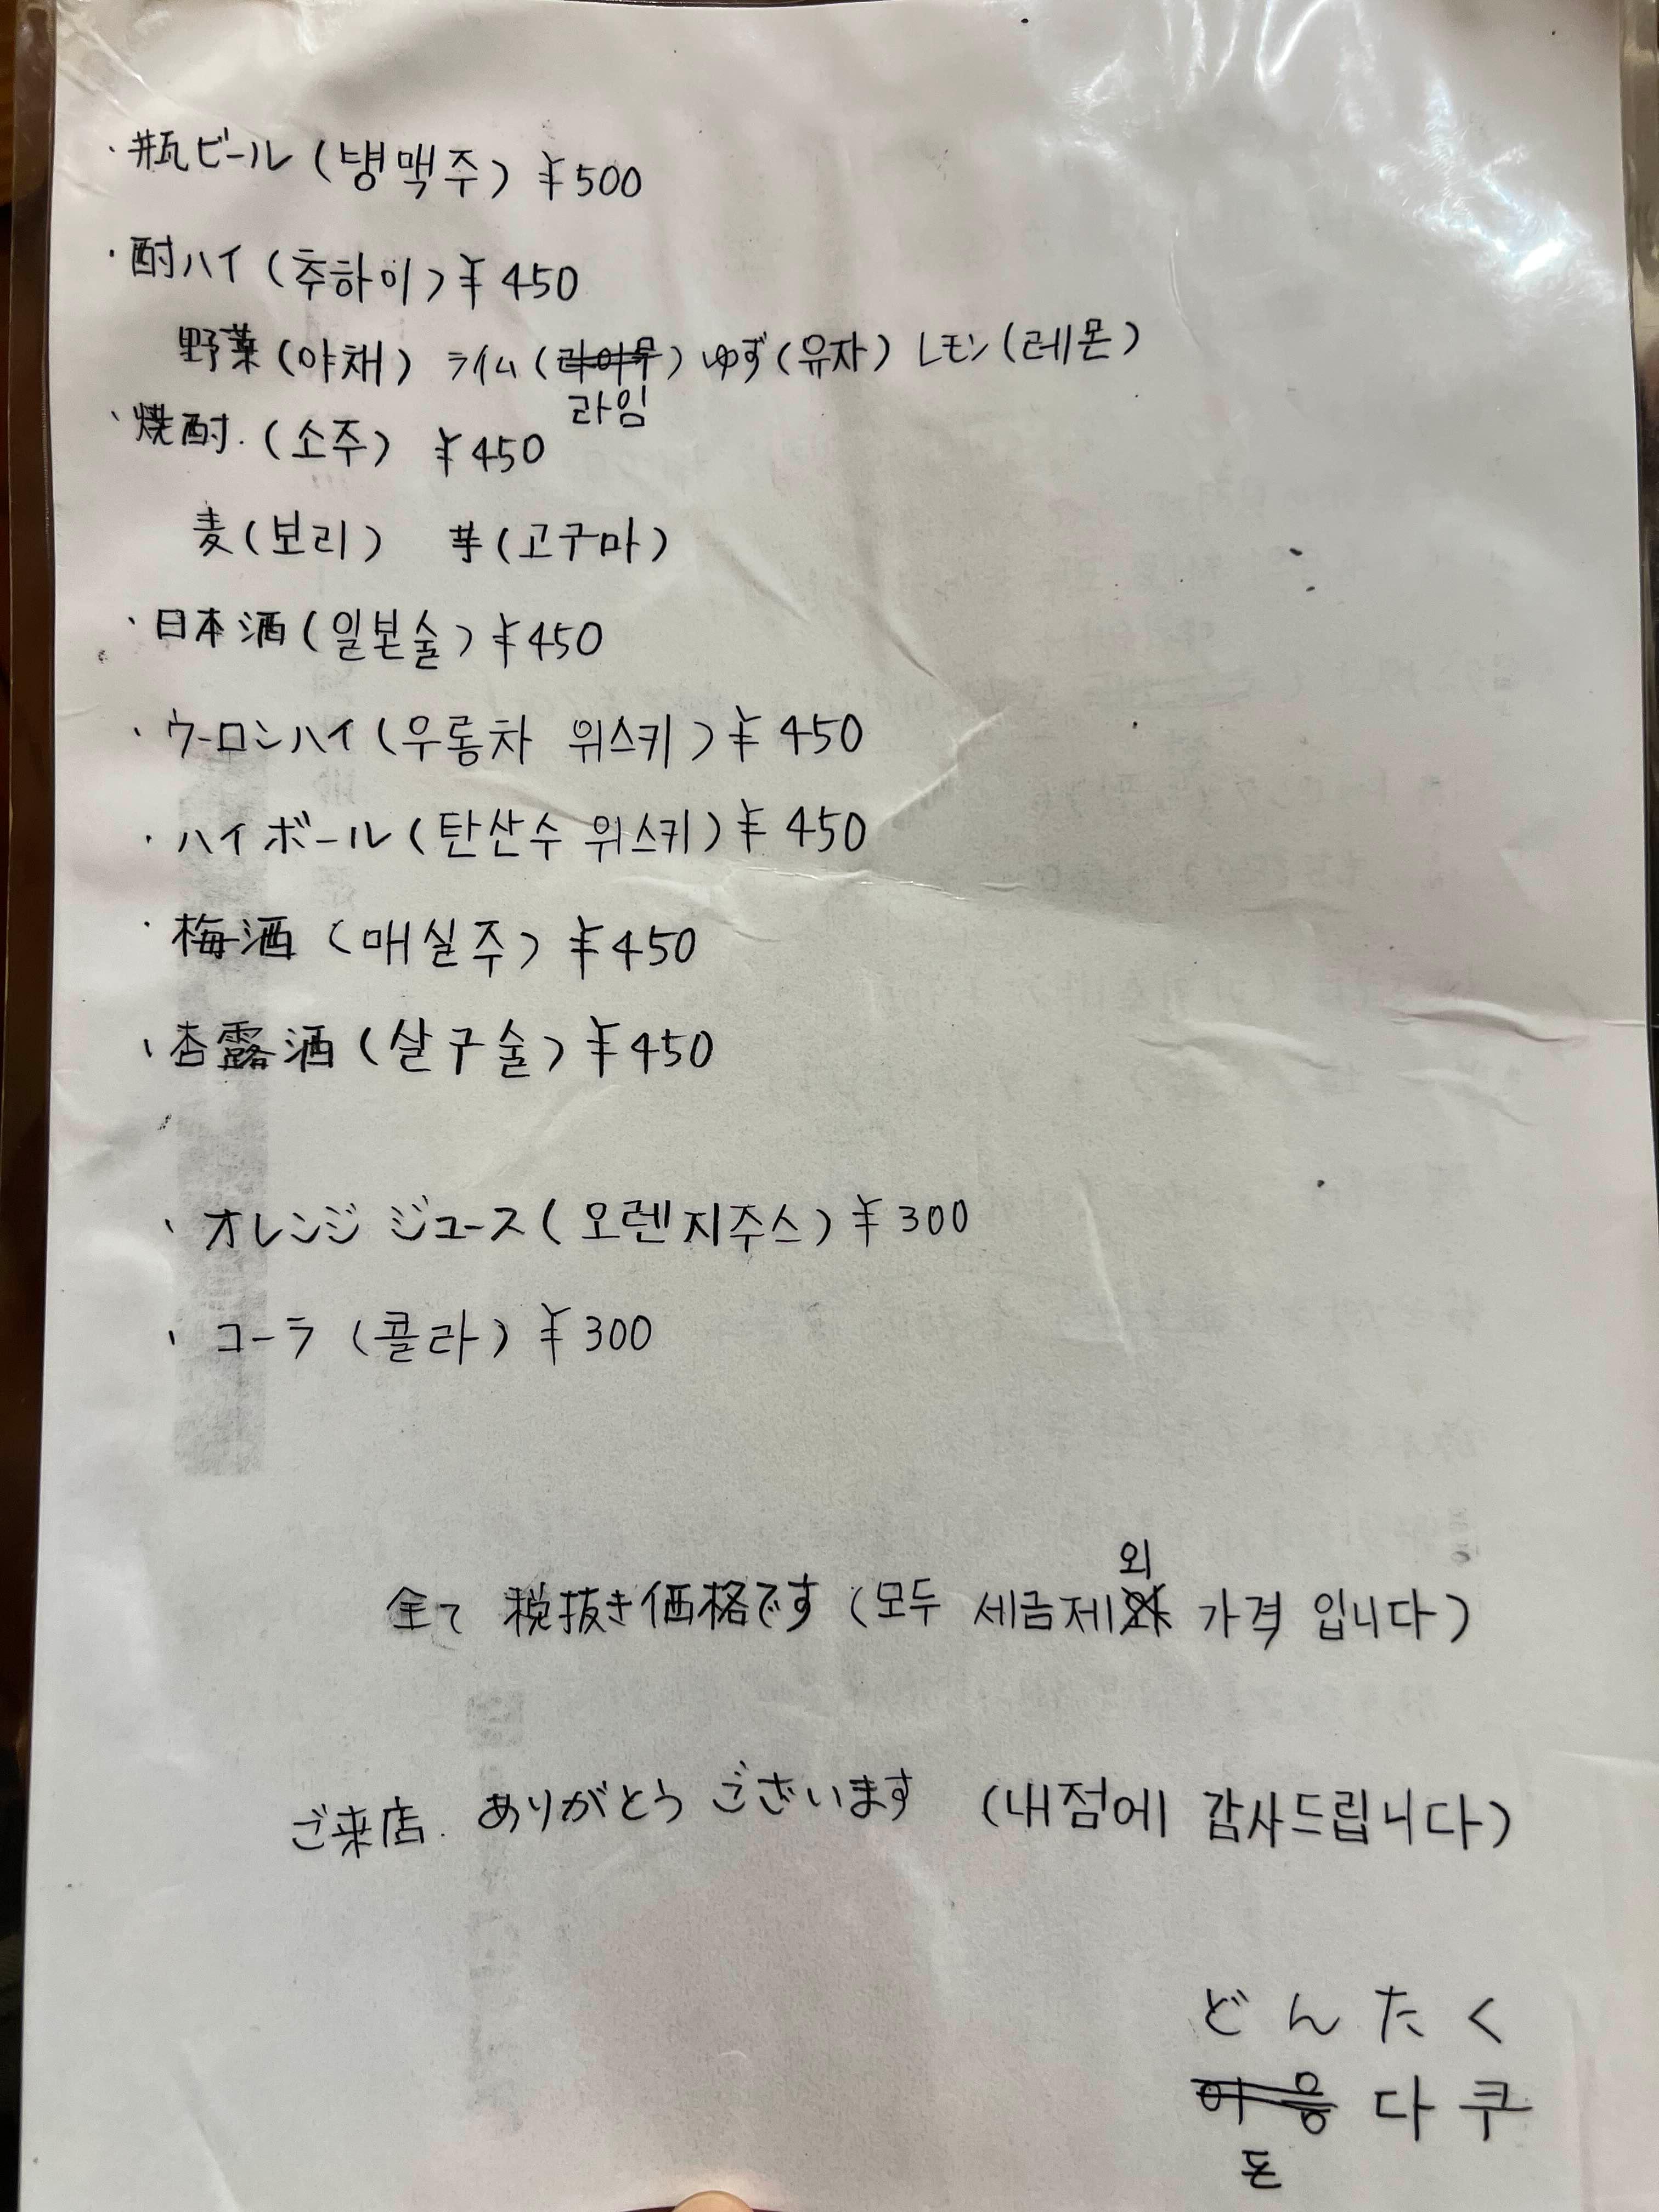 ・瓶ビール(병맥주) ¥500
・酎ハイ(추하이) ¥450
野菜(야채) ライム(라이무) ゆず(유자) レモン(레몬)
라임
・焼酎.(소주) ¥450
麦(보리) 芋(고구마)
・日本酒(일본술) ¥450
・ウーロンハイ(우롱차 위스키) ¥450
・ハイボール(탄산수 위스키) ¥450
・梅酒(매실주) ¥450
・杏露酒(살구술) ¥450
・オレンジジュース(오렌지주스) ¥300
・コーラ(콜라) ¥300
외
全て 税抜き価格です(모두 세금제 가격 입니다)
ご来店. ありがとうございます (내점에 감사드립니다)
どんたく
이응 다쿠
돈